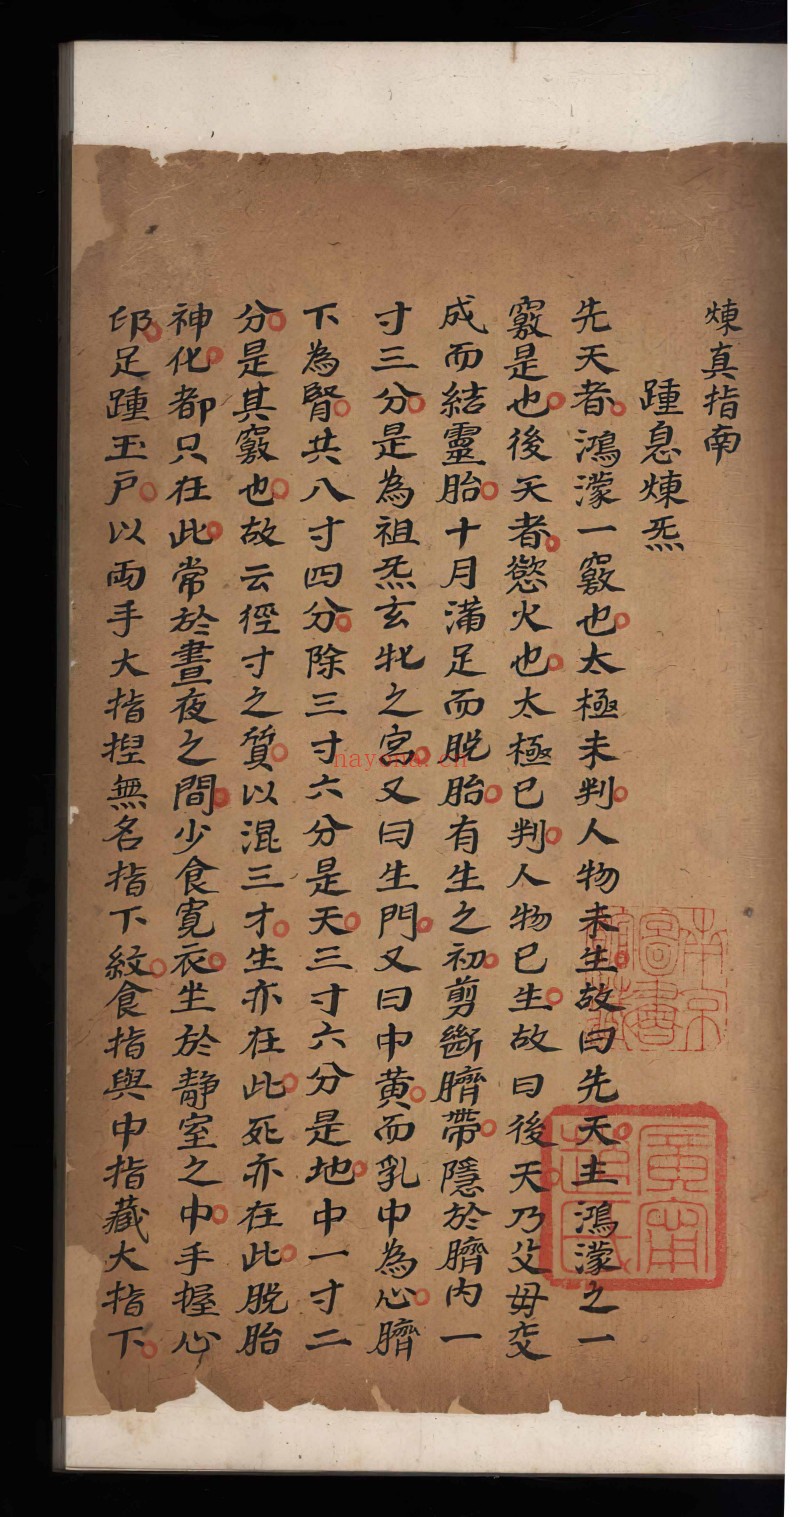 煉真指南
踵息煉炁
先天者鴻濛一竅也太極未判人物未生故曰先天主鴻濛之一
竅是也後天者慾火也太極已判人物已生故曰後天乃父母交
成而結靈胎十月滿足而脫胎有生之初剪斷臍帶隱於臍內一
寸三分是為祖炁玄牝之宮又曰生門又曰中黃而乳中為心臍
下為腎共八寸四分除三寸六分是天三寸六分是地中一寸二
分是其竅也故云徑寸之質以混三才生亦在此死亦在此脫胎
神化都只在此常於晝夜之間少食寬衣坐於靜室之中手握心
印足踵玉戶以兩手大指捏無名指下紋食指與中指藏大指下
南京
圖書
館藏
nayona.cn